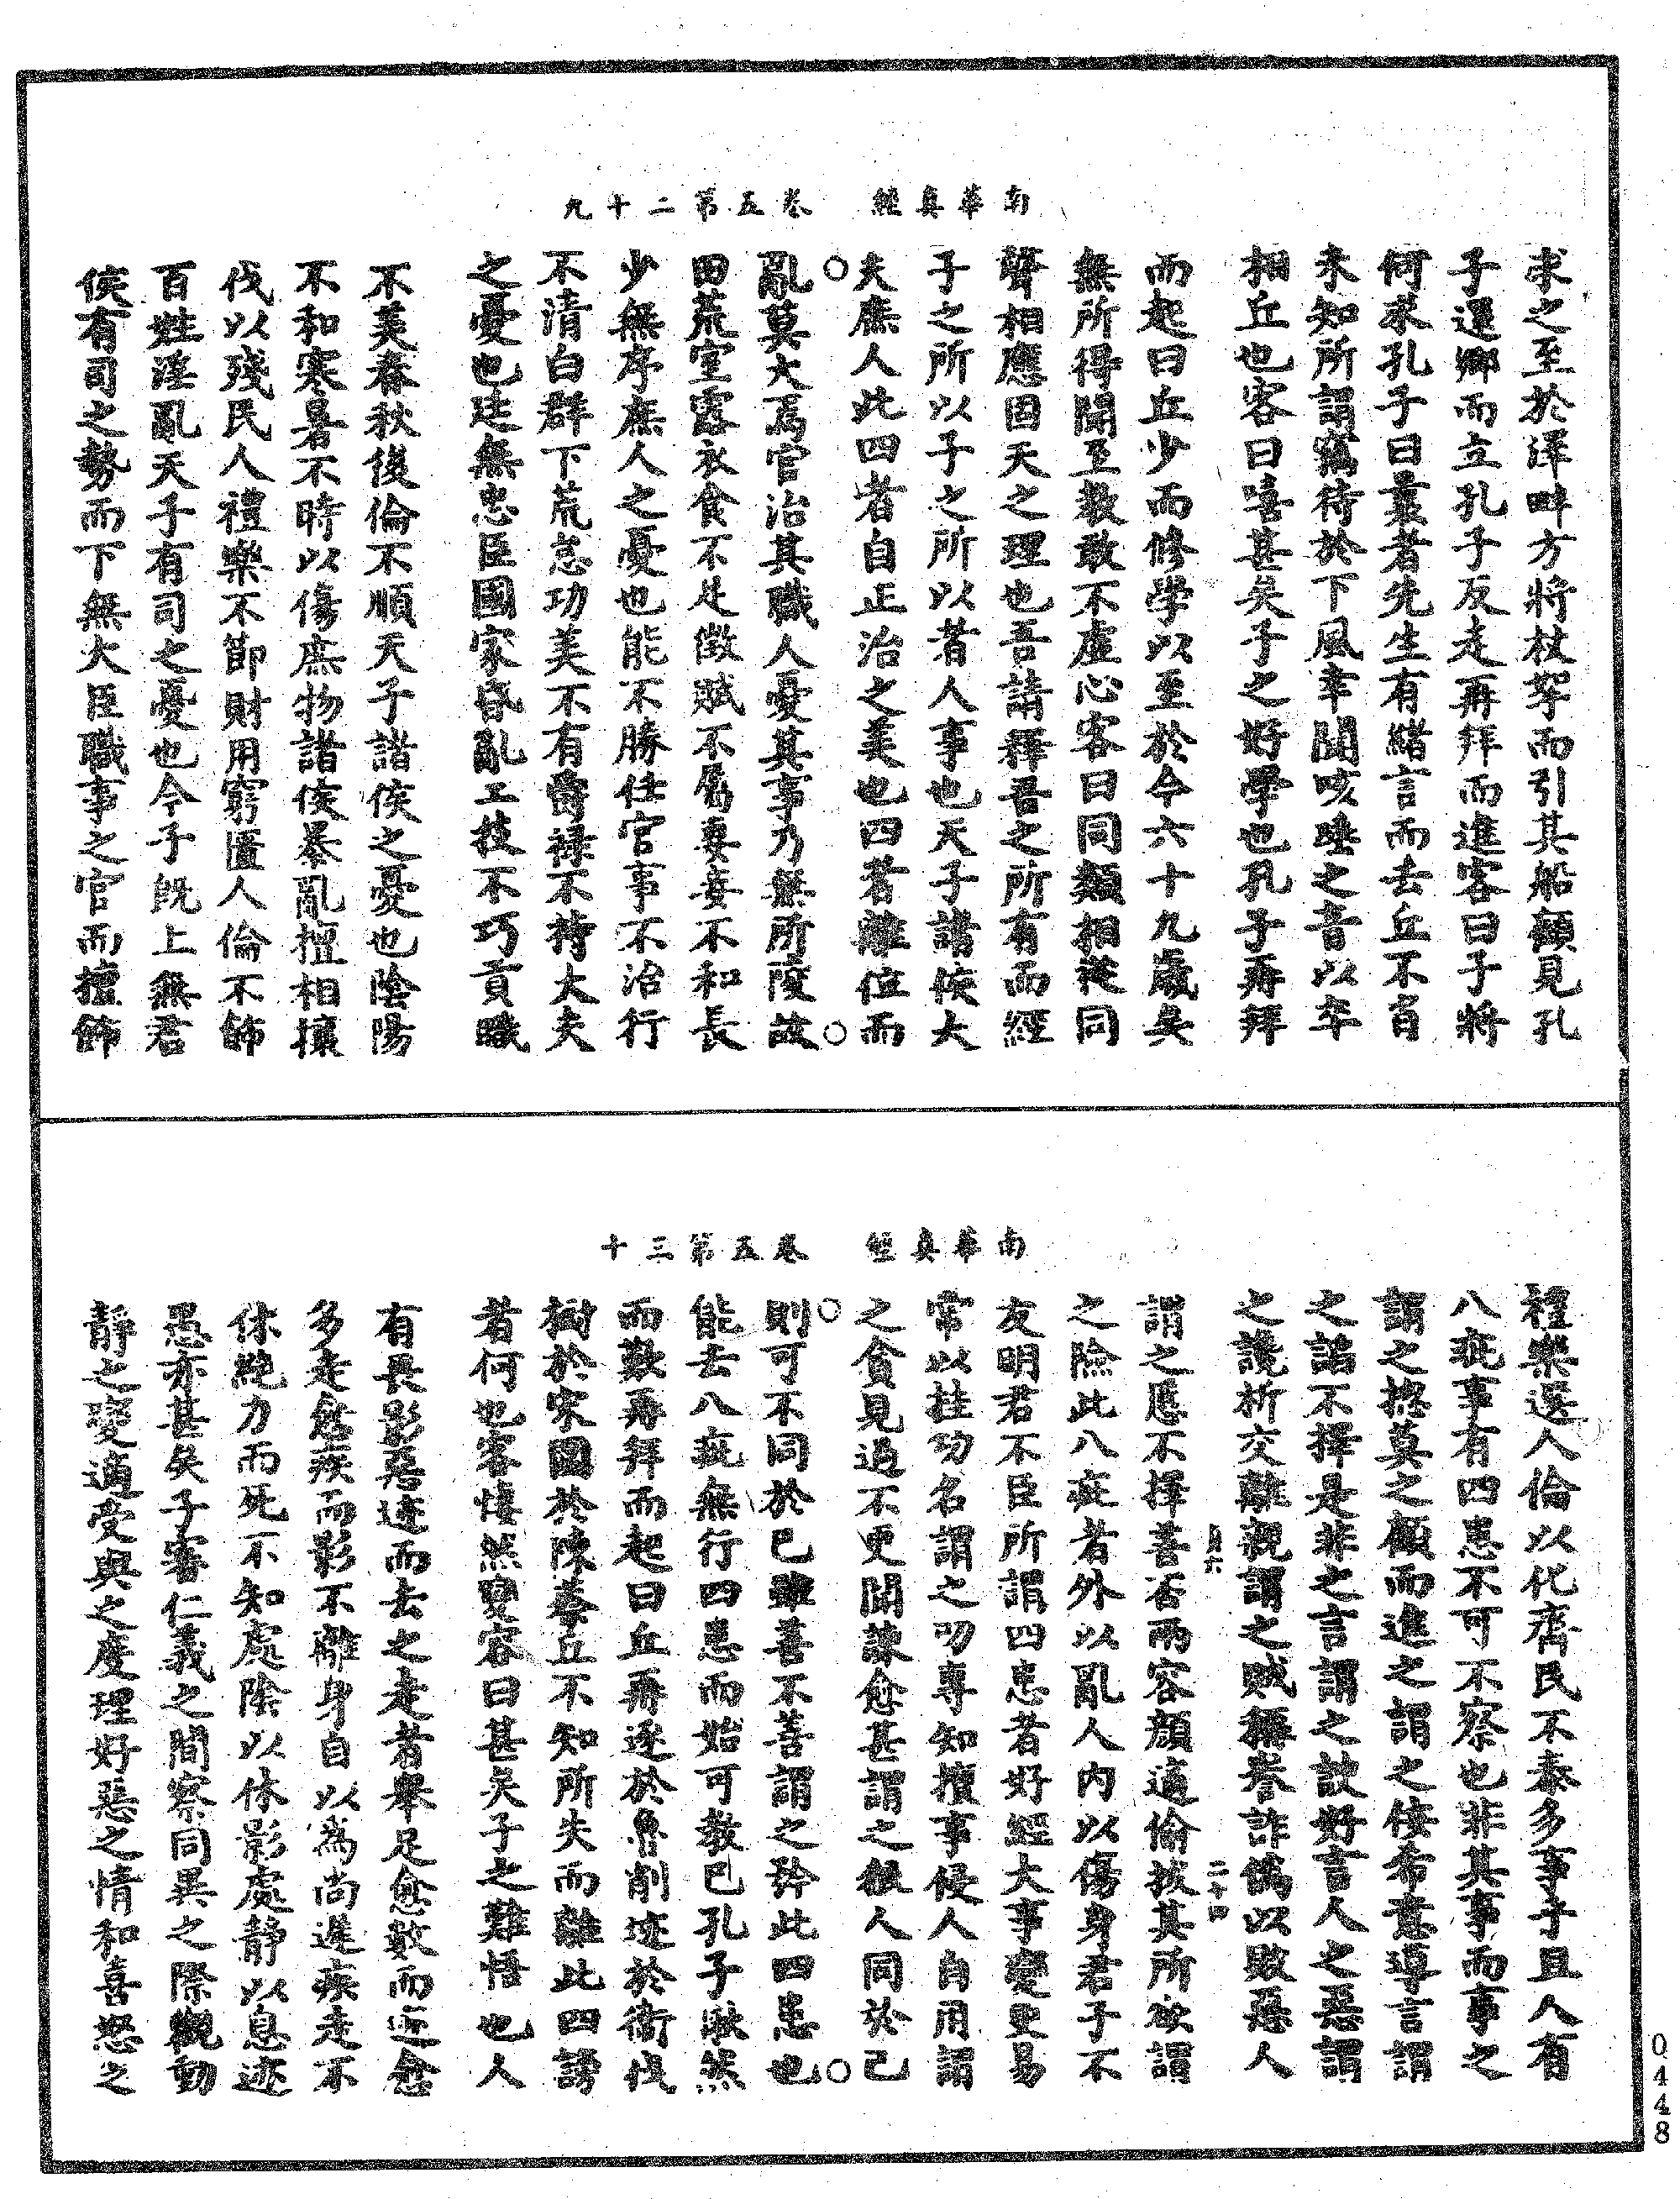 南華真經　卷五第二十九
求之至於澤畔方將杖拏而引其船顧見孔
子還鄉而立孔子反走再拜而進客曰子將
何求孔子曰曩者先生有緒言而去丘不肖
未知所謂竊待於下風幸聞咳唾之音以卒
相丘也客曰嘻甚矣子之好學也孔子再拜
而起曰丘少而修學以至於今六十九歲矣
無所得聞至教敢不虛心客曰同類相從同
聲相應固天之理也吾請釋吾之所有而經
子之所以子之所以者人事也天子諸侯大
夫庶人此四者自正治之美也四者離位而
亂莫大焉官治其職人憂其事乃無所陵故
田荒室露衣食不足徵賦不屬妻妾不和長
少無序庶人之憂也能不勝任官事不治行
不清白群下荒怠功美不有爵祿不持大夫
之憂也廷無忠臣國家昏亂工技不巧貢職
不美春秋後倫不順天子諸侯之憂也陰陽
不和寒暑不時以傷庶物諸侯暴亂擅相攘
伐以殘民人禮樂不節財用窮匱人倫不飭
百姓淫亂天子有司之憂也今子既上無君
侯有司之勢而下無大臣職事之官而擅飭
南華真經　卷五第三十
禮樂選人倫以化齊民不泰多事乎且人有
八疵事有四患不可不察也非其事而事之
謂之摠莫之顧而進之謂之佞希意導言謂
之諂不擇是非之言謂之諛好言人之惡謂
之讒析交離親謂之賊稱譽詐偽以敗惡人
謂之慝不擇善否兩容顏適偷拔其所欲謂
之險此八疵者外以亂人內以傷身君子不
友明君不臣所謂四患者好經大事變更易
常以挂功名謂之叨專知擅事侵人自用謂
之貪見過不更聞諫愈甚謂之很人同於己
則可不同於己雖善不善謂之矜此四患也
能去八疵無行四患而始可教已孔子愀然
而歎再拜而起曰丘再逐於魯削迹於衞伐
樹於宋圍於陳蔡丘不知所失而離此四謗
者何也客悽然變容曰甚矣子之難悟也人
有畏影惡迹而去之走者舉足愈數而迹愈
多走愈疾而影不離身自以為尚遲疾走不
休絕力而死不知處陰以休影處靜以息迹
愚亦甚矣子審仁義之間察同異之際觀動
靜之變適受與之度理好惡之情和喜怒之
二十四
0448